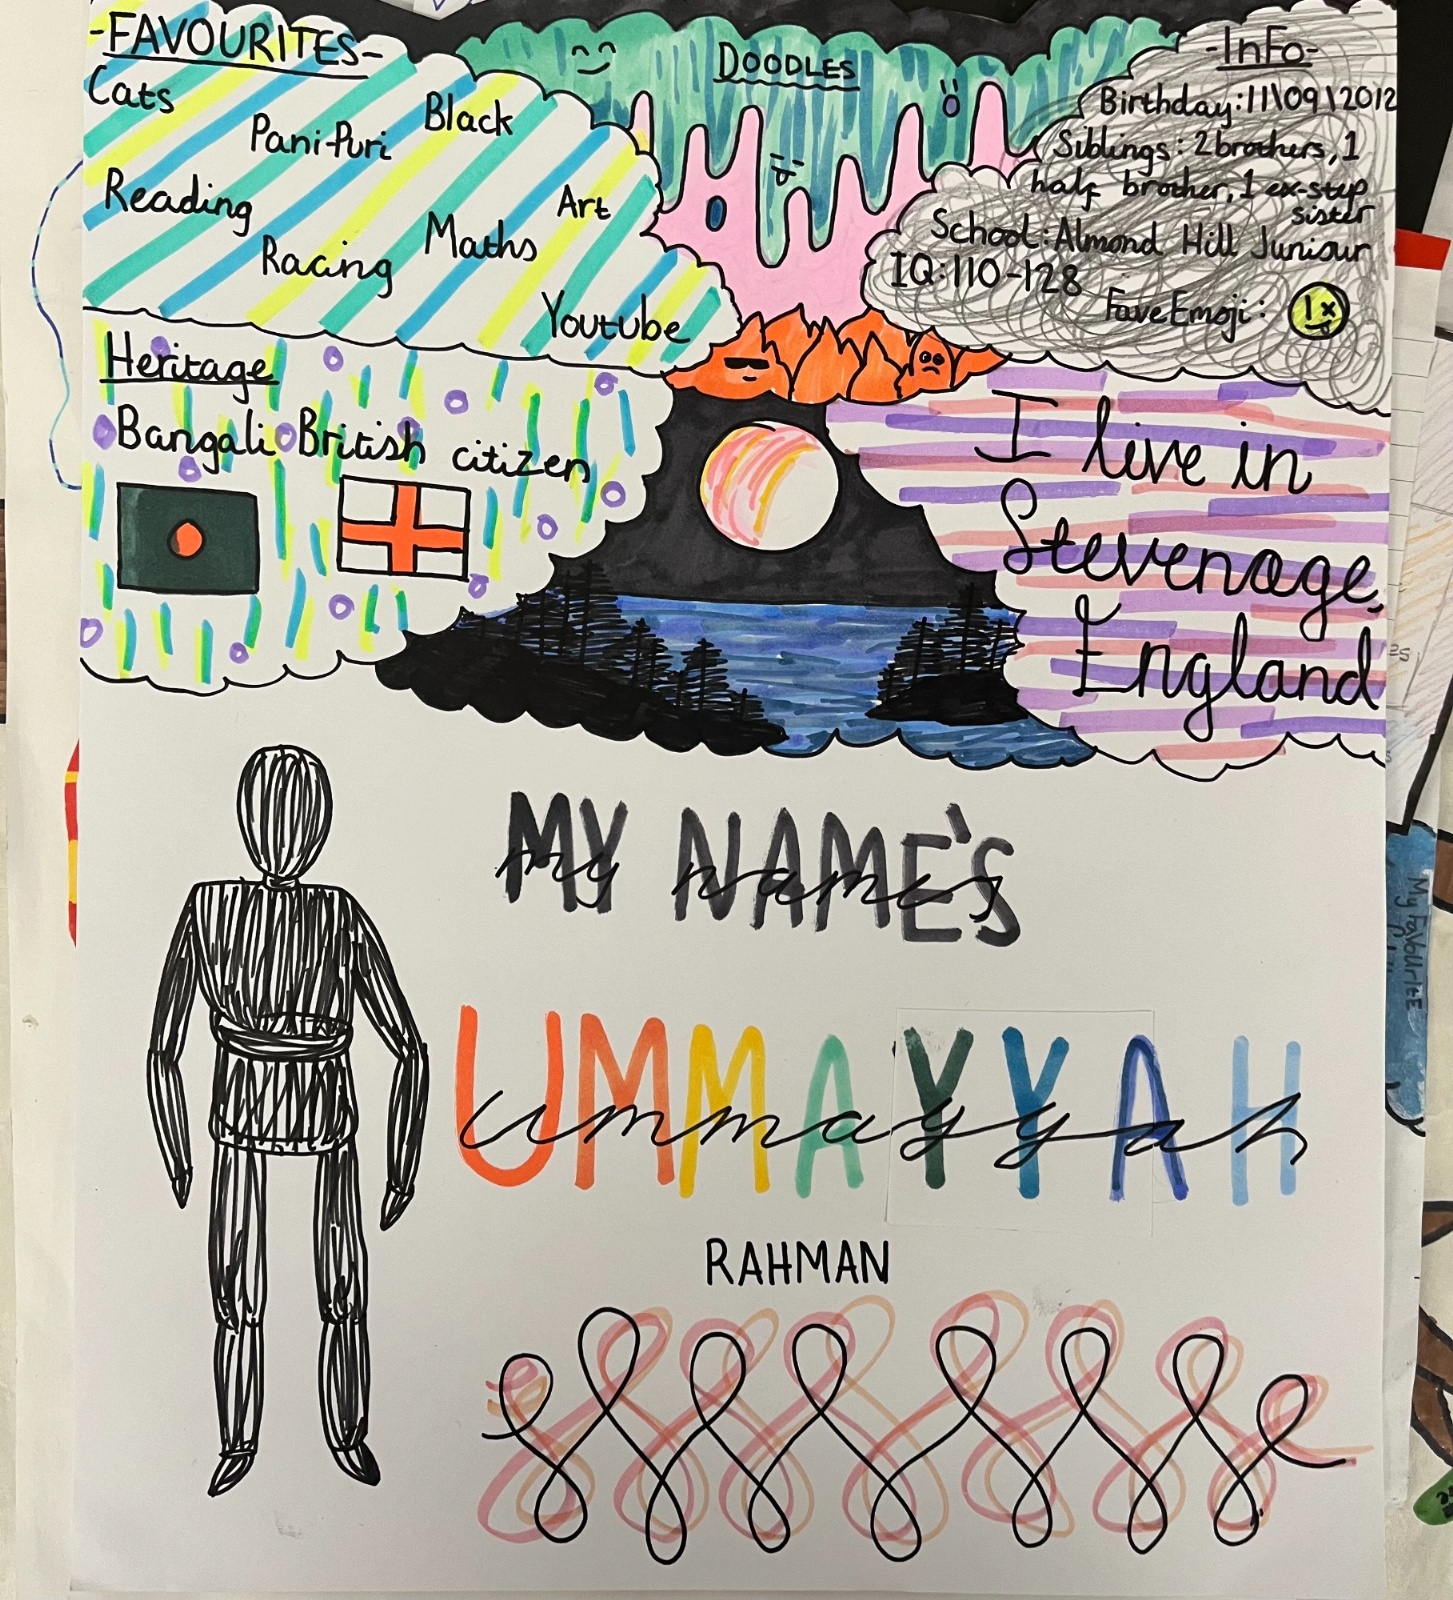 -FAVOURITES-
Cats
Black
Pani-Puri
Reading
Art
Maths
Racing
Youtube
DOODLES
-InFo-
Birthday:11\09\2012
Siblings: 2 brothers, 1
half brother, 1 ex-step
sister
School: Almond Hill Juniour
IQ:110-128
Fave Emoji:
Heritage
Bangali British citizen
I live in
Stevenage,
England
MY NAME'S
my name's
UMMAYYAH
ummayyah
RAHMAN
My FavourIEE